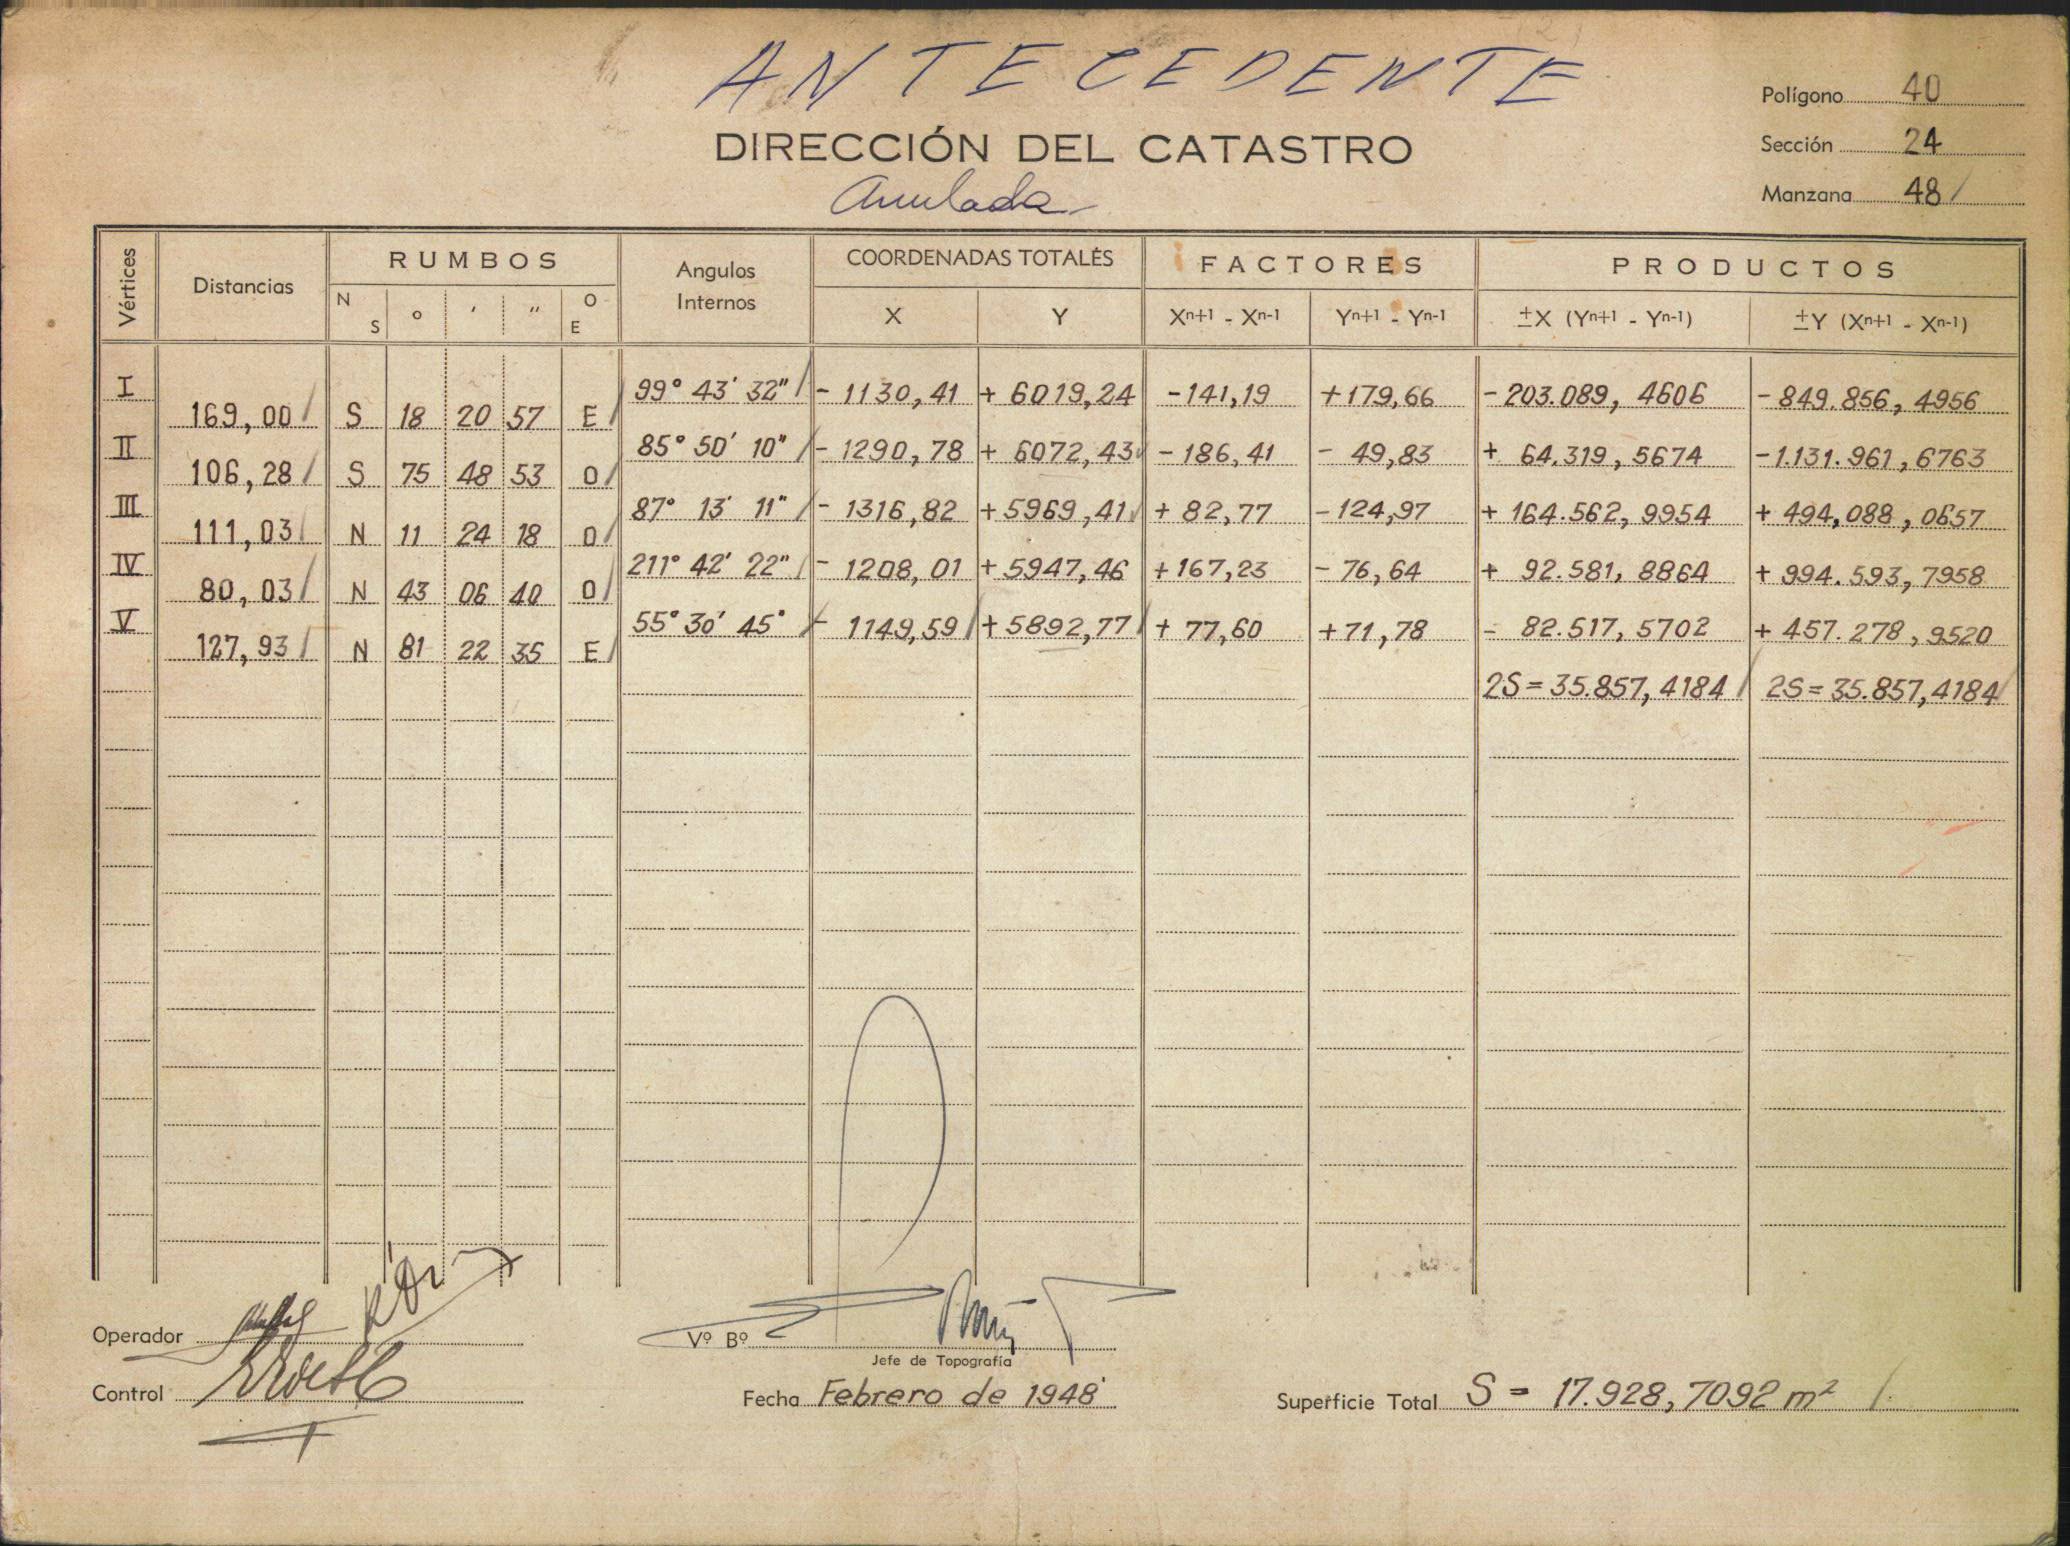 ANTECEDENTE
Polígono 40
DIRECCIÓN DEL CATASTRO
Sección 24
Anulada
Manzana 48
Vértices Distancias RUMBOS Angulos Internos COORDENADAS TOTALES FACTORES PRODUCTOS
N S ° ' " O E X Y Xn+1 - Xn-1 Yn+1 - Yn-1 ±X (Yn+1 - Yn-1) ±Y (Xn+1 - Xn-1)
I 99° 43' 32" - 1130,41 + 6019,24 -141,19 +179,66 -203.089, 4606 -849.856, 4956
169,00 S 18 20 57 E
II 85° 50' 10" - 1290,78 + 6072,43 - 186,41 - 49,83 + 64.319, 5674 -1.131.961, 6763
106,28 S 75 48 53 O
III 87° 13' 11" - 1316,82 +5969,41 + 82,77 -124,97 + 164.562, 9954 + 494,088, 0657
111,03 N 11 24 18 O
IV 211° 42' 22" - 1208,01 +5947,46 +167,23 - 76,64 + 92.581, 8864 + 994.593, 7958
80,03 N 43 06 40 O
V 55° 30' 45° - 1149,59 +5892,77 + 77,60 +71,78 - 82.517, 5702 + 457.278, 9520
127,93 N 81 22 35 E
2S=35.857,4184 2S=35.857,4184
Operador
Vº Bº
Jefe de Topografía
Control
Fecha Febrero de 1948
Superficie Total S = 17.928,7092 m²